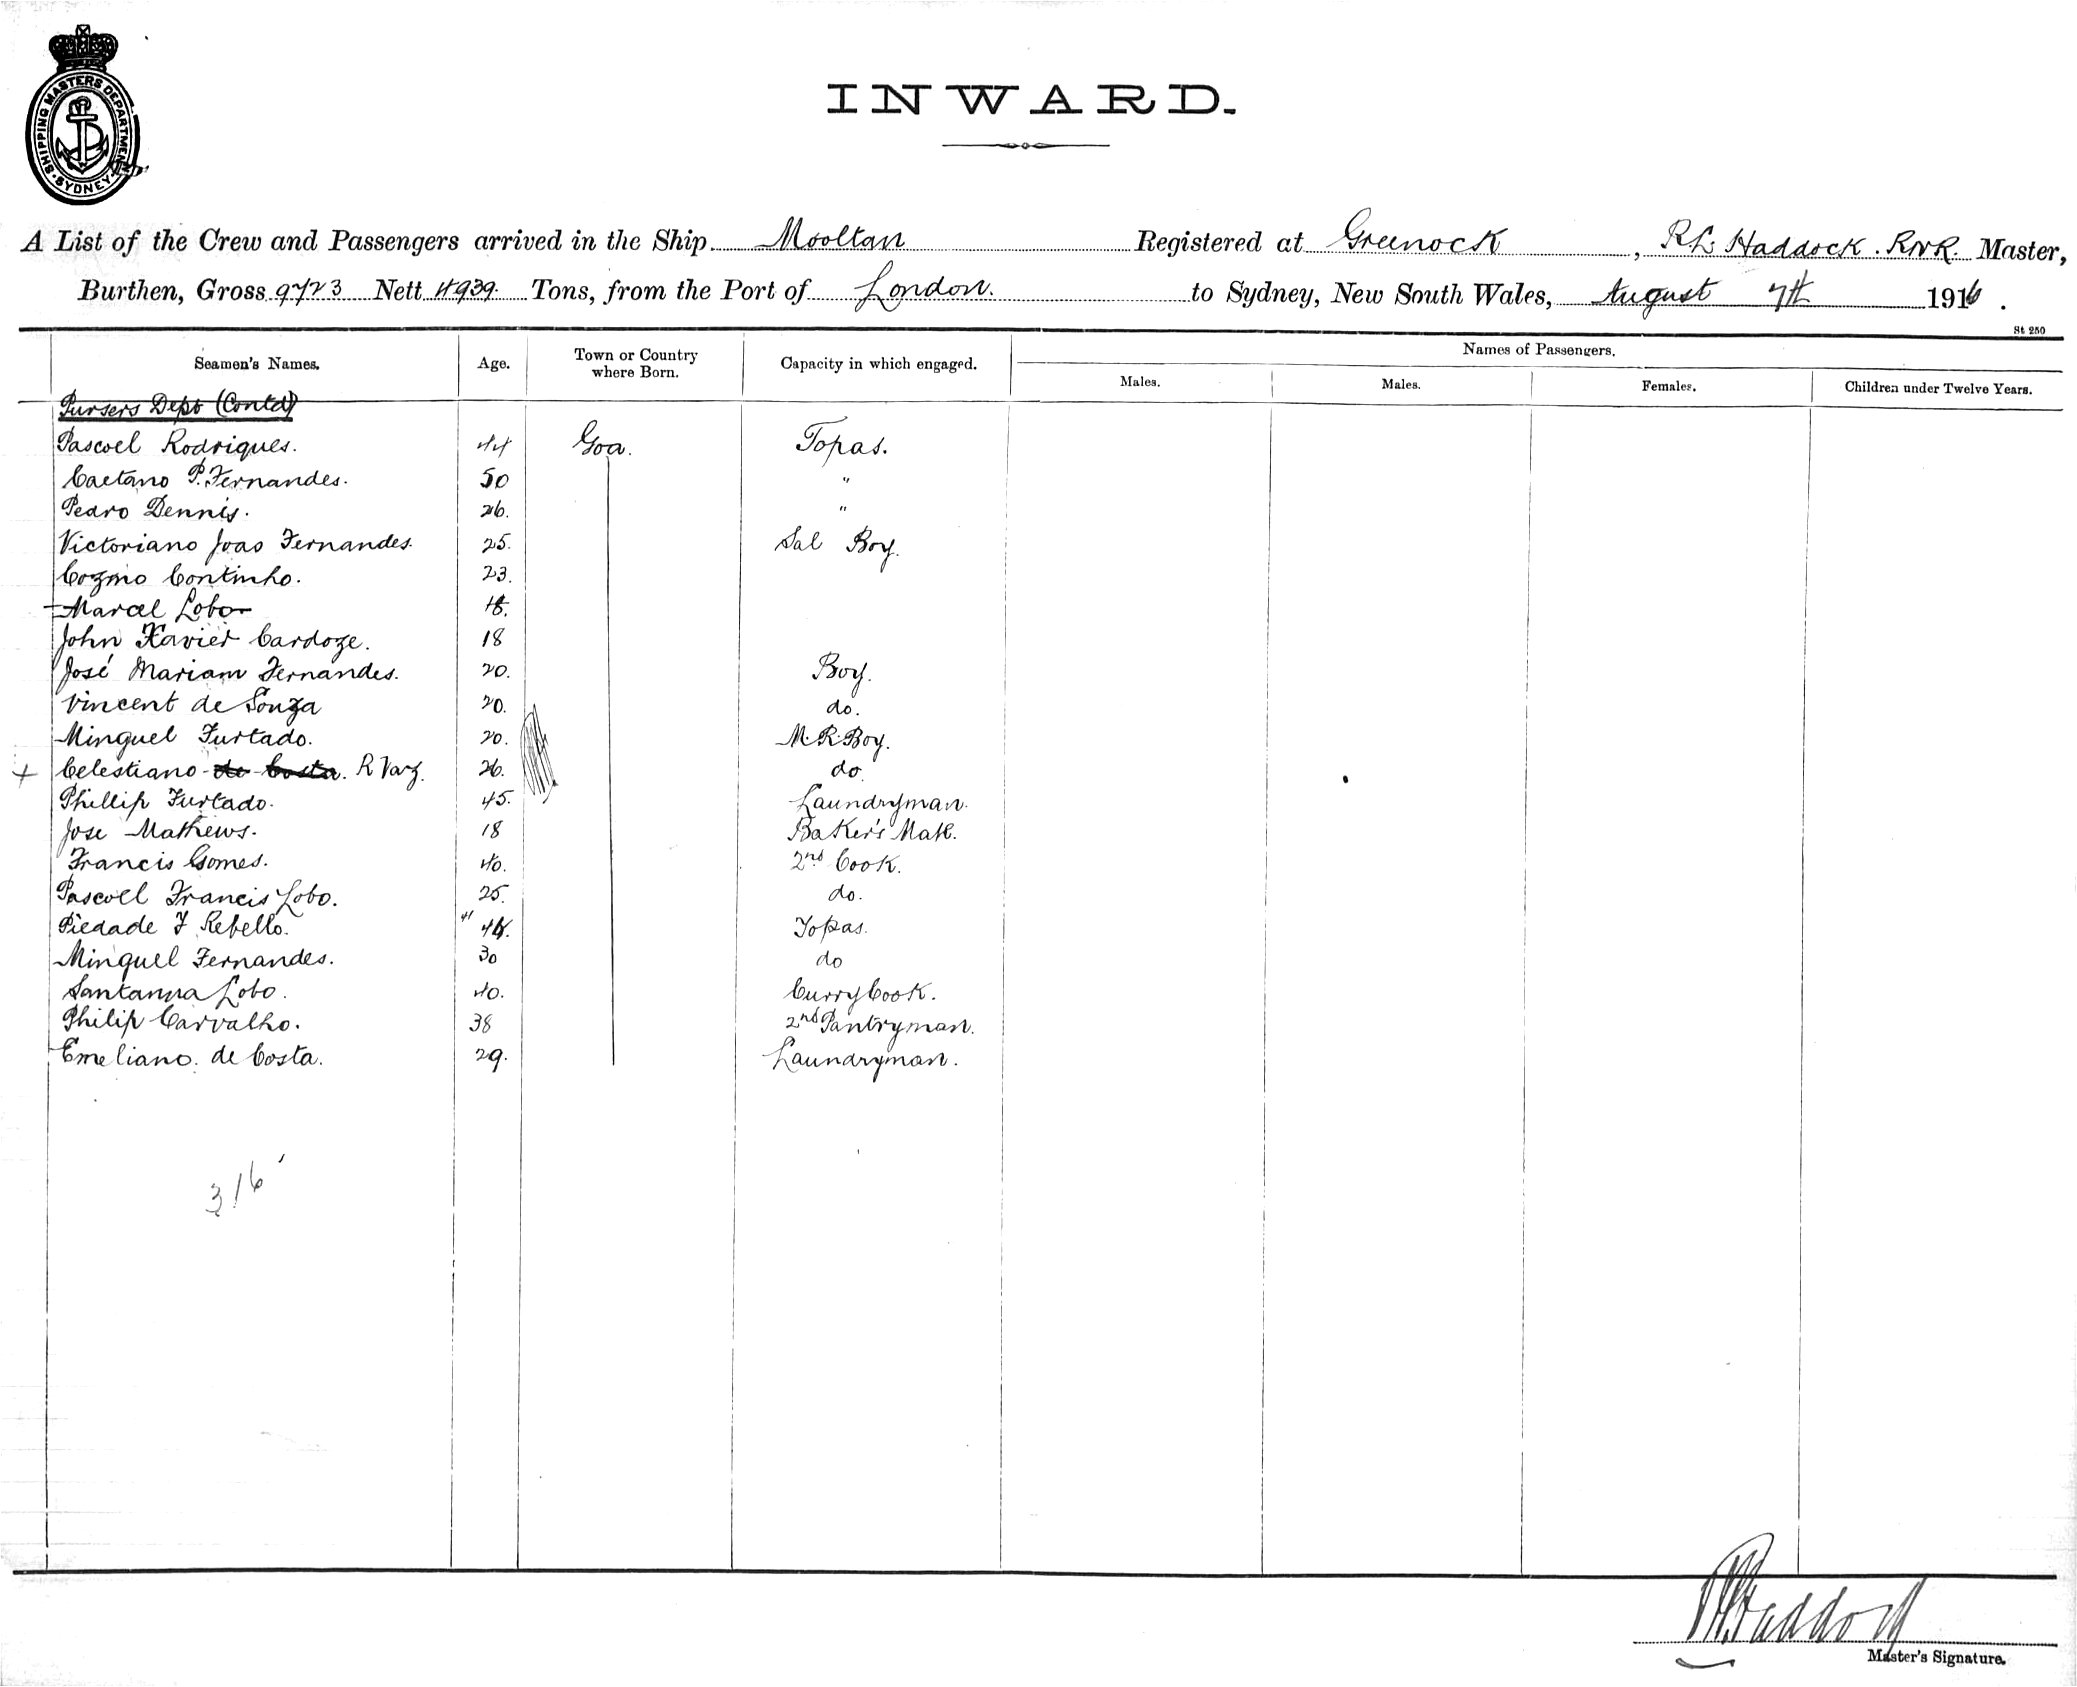 SHIPPING MASTERS DEPARTMENT SYDNEY
INWARD.
A List of the Crew and Passengers arrived in the Ship Mooltan Registered at Greenock, R.L. Haddock. RNR. Master,
Burthen, Gross 9723 Nett 4939. Tons, from the Port of London. to Sydney, New South Wales, August 7th 1916.
St 250
Seamen's Names. Age. Town or Country where Born. Capacity in which engaged. Names of Passengers.
Males. Males. Females. Children under Twelve Years.
Pursers Dept (Contd)
Pascoel Rodriques. 44 Goa. Topas.
Caetano P. Fernandes. 50 "
Pedro Dennis. 26. "
Victoriano Joao Fernandes. 25. Sal Boy.
Cozmo Continho. 23.
Marcel Lobo 18.
John Xavier Cardoze. 18
José Mariam Fernandes. 20. Boy.
Vincent de Souza 20. do.
Minguel Furtado. 20. M.R. Boy.
+ Celestiano de Costa. R Vaz. 26. do.
Phillip Furtado. 45. Laundryman.
Jose Mathews. 18 Baker's Mate.
Francis Gomes. 40. 2nd Cook.
Pascoel Francis Lobo. 25. do.
Piedade F Rebello. 41 44. Topas.
Minguel Fernandes. 30 do
Santanna Lobo. 40. Curry Cook.
Philip Carvalho. 38 2nd Pantryman.
Emeliano. de Costa. 29. Laundryman.
316
R.L. Haddock
Master's Signature.